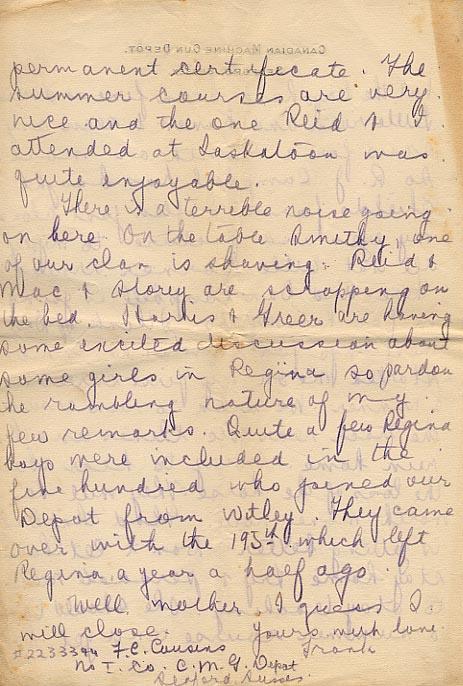 CANADIAN MACHINE GUN DEPOT.
permanent certifecate. The
summer courses are very
nice and the one Reid & I
attended at Saskatoon was
quite enjoyable.
There is a terrible noise going
on here. On the table Smethy, one
of our clan is shaving. Reid &
Mac & Storey are scrapping on
the bed. Harris & Greer are having
some excited discussion about
some girls in Regina so pardon
the rambling nature of my
few remarks. Quite a few Regina
boys were included in the
five hundred who joined our
Depot from Witley. They came
over with the 195th which left
Regina a year & a half ago.
Well mother I guess I
will close. Yours with love
Frank
#2233394 F.C. Cousins
No I. Co. C.M.G. Depot
Seaford, Sussex.